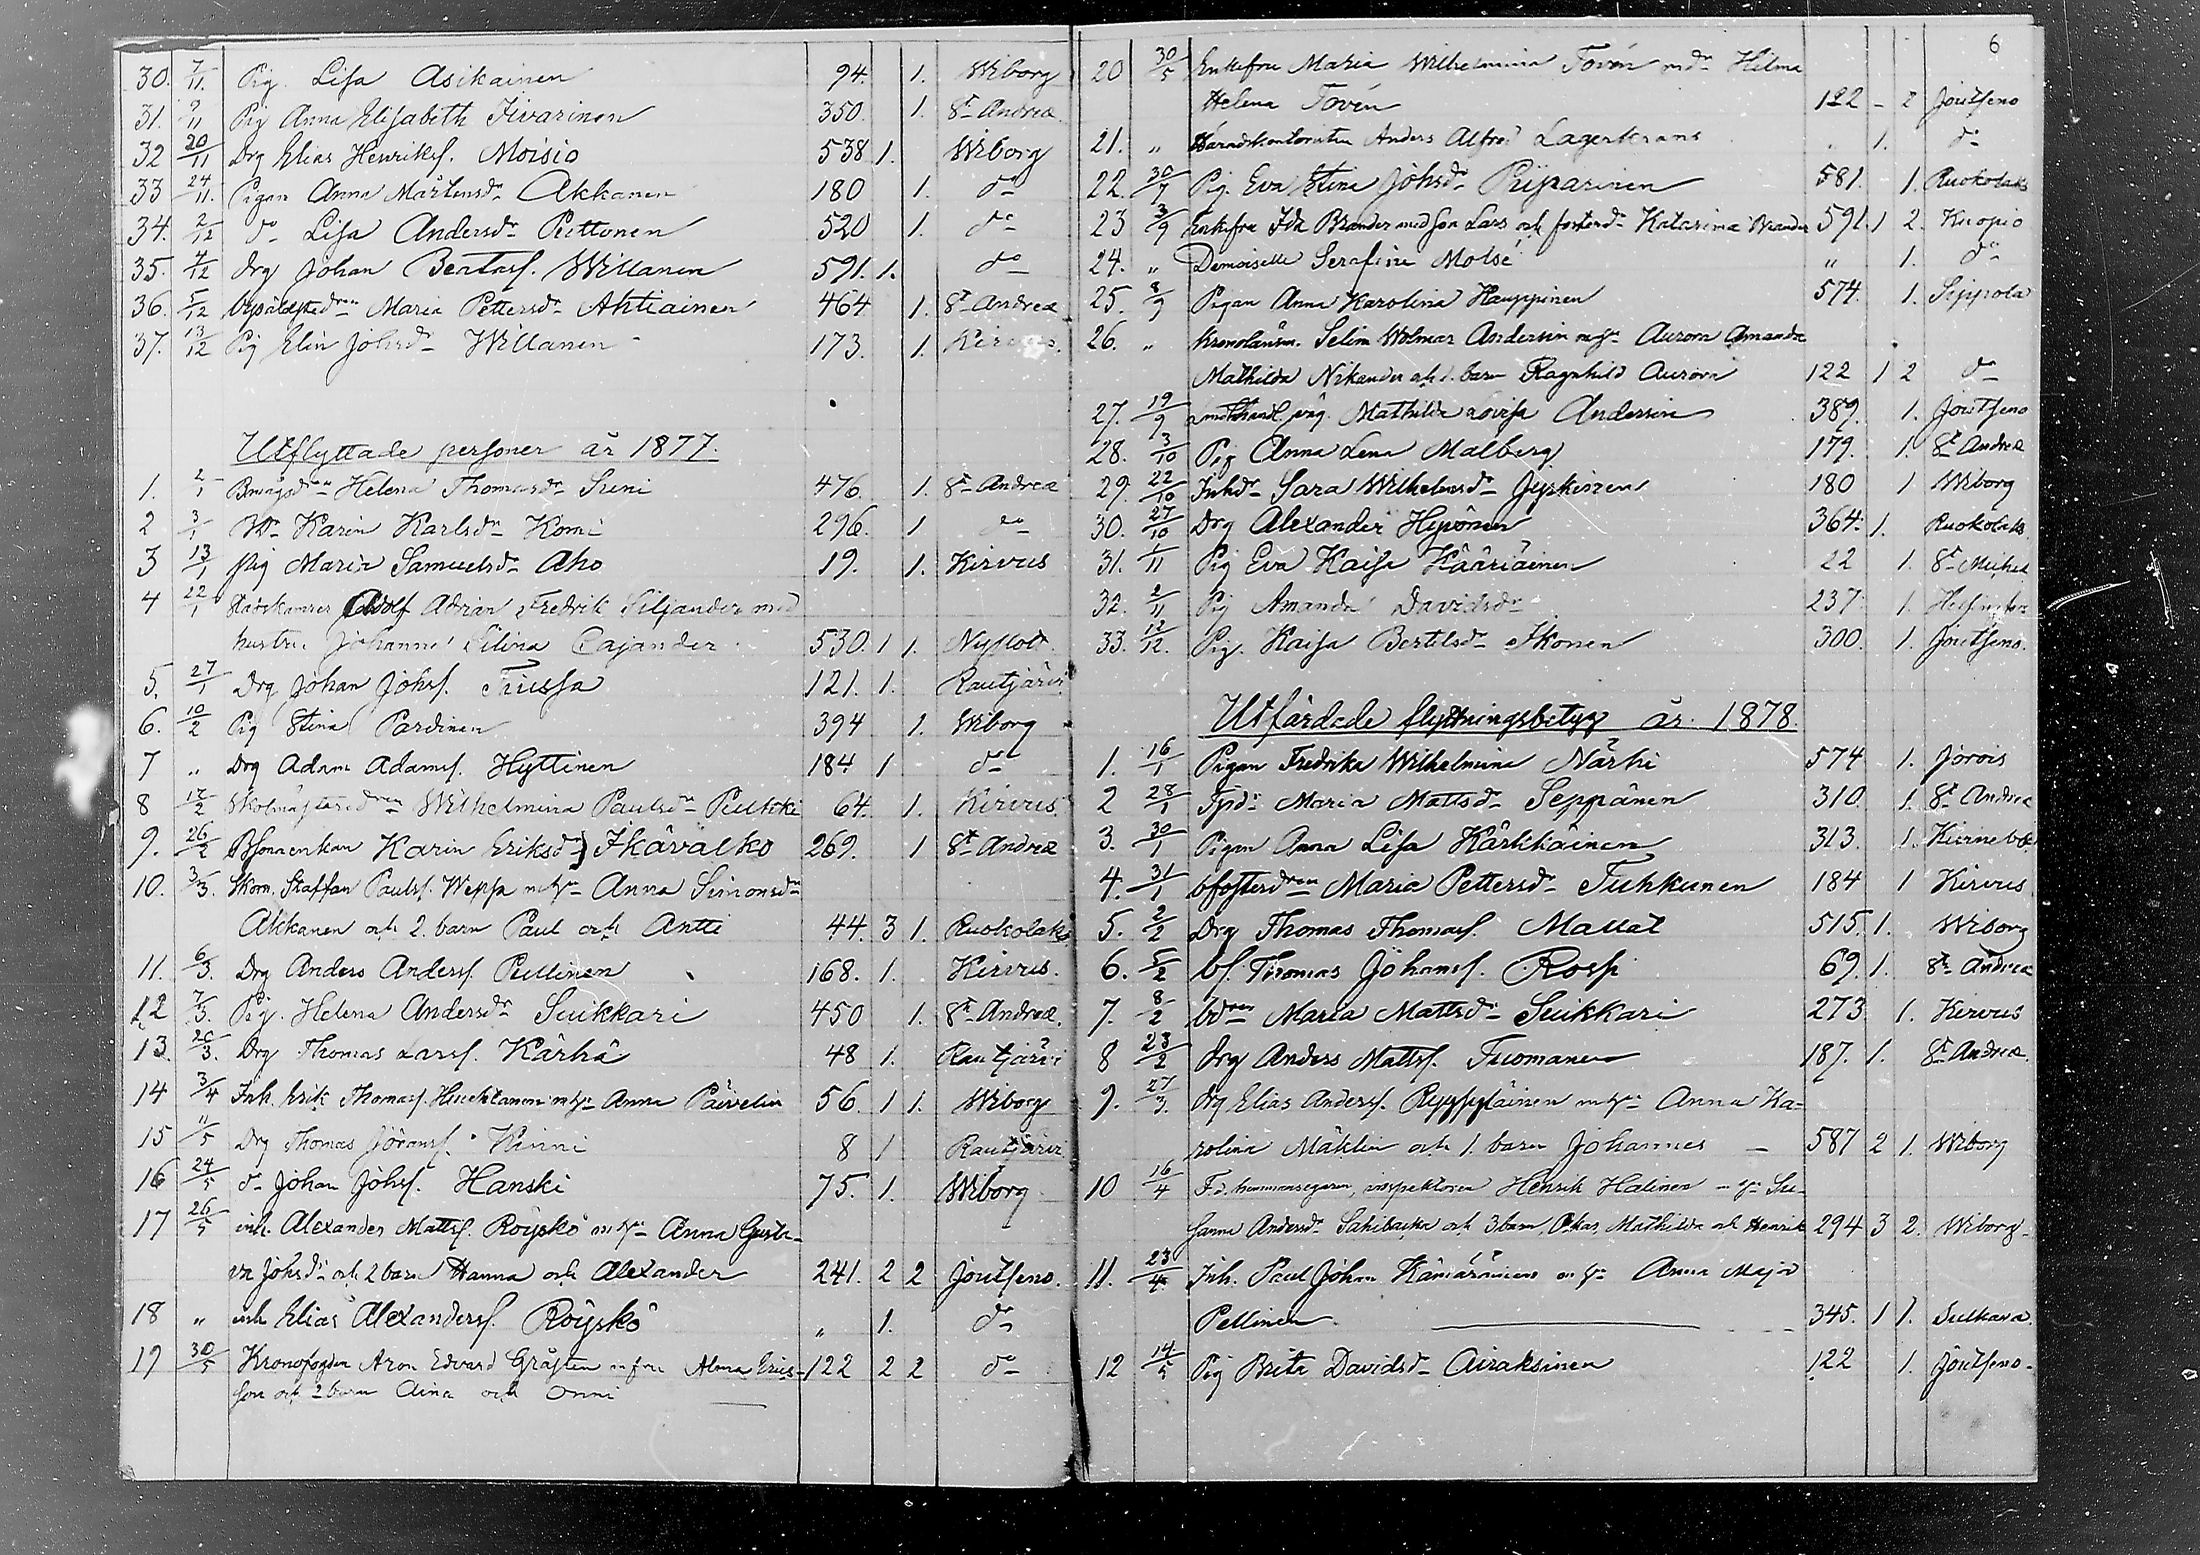 30. 7/11. Pig. Lisa Asikainen 94. 1. Wiborg
31. 9/11 Pig Anna Elisabeth Iivarinen 350. 1. St Andreæ
32 20/11 Drg Elias Henriksf. Moisio 538 1. Wiborg
33 24/11. Pigan Anna Mårtensdr Akkanen 180 1. do
34. 2/12 do Lisa Andersdr Peltonen 520 1. do
35. 4/12 drg Johan Bertasf. Willanen 591. 1. do
36. 5/12 Maria Pettersdr Ahtiainen 464 1. St Andreæ
37. 13/12 Pig Elin Johsdr Willanen 173. 1. Kirvus.
Utflyttade personer år 1877.
1. 2/1 Helena Thomasdr Suni 476. 1. St Andreæ
2 3/1 Karin Karlsdr Komi 296. 1 do
3 13/1 Pig Maria Samuelsdr Aho 19. 1. Kirvus
4 22/1 Adolf Adrian Fredrik Siljander med
hustru Johanna Lilina Cajander 530. 1 1. Nyslott.
5. 27/1 Drg Johan Johsf. Tiussa 121. 1. Rautjärvi
6. 10/2 Pig Stina Parvinen 394 1. Wiborg
7 " Drg Adam Adamsf. Hyttinen 184 1 do
8 12/2 Wilhelmina Paulsdr Peukki 64. 1. Kirvus.
9. 26/2 Karin Eriksdr Ikävalko 269. 1 St Andreæ
10. 3/3. Skom. Staffan Paulsf. Weppa m h Anna Simonsdr
Akkanen och 2. barn Paul och Antti 44. 3 1. Ruokolaks
11. 6/3. Drg Anders Andersf. Pellinen 168. 1. Kirvus.
12 7/3. Pig. Helena Andersdr Suikkari 450 1. St Andreæ.
13. 20/3. Drg Thomas Larsf. Kärhä 48 1. Rautjärvi
14 3/4 Inh. Erik Thomasf. Anna Päivelin 56. 1 1. Wiborg
15 11/5 Drg Thomas Göransf. Kinni 8 1 Rautjärvi
16 24/5 do Johan Johsf. Hanski 75. 1. Wiborg
17 26/5 inh. Alexander Mattsf. Röyskö m h Anna Gusta-
va Johsdr och 2 barn Hanna och Alexander 241. 2 2 Joutseno.
18 " inh Elias Alexandersf. Röyskö " 1. do
19 30/5 Kronofogden Aron Edvard Gråsten m fru Alma Erics- 122 2 2 do
son och 2 barn Aina och Onni
6
20 30/5 Enkefru Maria Wilhelmina Tovén m dr Hilma
Helena Tovén 122 - 2 Joutseno
21. " Anders Alfred Lagerkrans " 1. do
22. 30/7 Pig. Eva Stina Johsdr Piiparinen 581. 1. Ruokolaks
23 3/9 Enkefru Ida Brander med son Lars och fosterdr Katarina Brander 591. 1 2. Kuopio
24. " Demoiselle Serafine Molsé " 1. do
25. 8/9 Pigan Anna Karolina Hauppinen 574. 1. Sippola
26. " Kronolänsm. Selim Wolmar Andersin m h Aurora Amanda
Mathilda Nikander och 1. barn Ragnhild Aurora 122 1 2 do
27. 19/9 Mathilda Lovisa Andersin 389. 1. Joutseno
28. 3/10 Pig Anna Lena Malberg 179. 1. St Andreæ
29. 22/10 Inhdr Sara Wilhelmsdr Jyskinen 180 1 Wiborg
30. 27/10 Drg Alexander Hyvönen 364. 1. Ruokolaks
31. 1/11 Pig Eva Kaisa Kääriäinen 22 1. St Michel
32. 2/11 Pig Amanda Davidsdr 237. 1. Helsingfors
33. 12/12. Pig. Kaisa Bertilsdr Ikonen 300. 1. Joutseno.
Utfärdade flyttningsbetyg år 1878.
1. 16/1 Pigan Fredrika Wilhelmina Närhi 574 1. Jorois
2 28/1 Maria Mattsdr Seppänen 310. 1. St Andreæ
3. 30/1 Pigan Anna Lisa Kärkkäinen 313. 1.
4. 31/1 Maria Pettersdr Tuhkunen 184 1 Kirvus
5. 2/2 Drg Thomas Thomasf. Mallat 515. 1. Wiborg
6. 5/2 bf. Thomas Johansf. Rospi 69. 1. St Andreæ
7. 8/2 Maria Mattsdr Suikkari 273 1. Kirvus
8 23/2 drg Anders Mattsf. Tuomanen 187. 1. St Andreæ.
9. 27/3. Drg Elias Andersf. m h Anna Ka-
rolina Mäklin och 1. barn Johannes — 587 2 1. Wiborg
10 16/4 F.d. hemmansegaren, inspektoren Henrik Halinen m h Su-
sanna Andersdr Sahibacka och 3 barn, Oskar, Mathilda och Henrik 294 3 2. Wiborg
11. 23/4. Inh. Paul Johan Kämäräinen m h Anna Maja
Pellinen 345. 1 1. Sulkava.
12 14/5 Pig Brita Davidsdr Airaksinen 122 1. Joutseno.